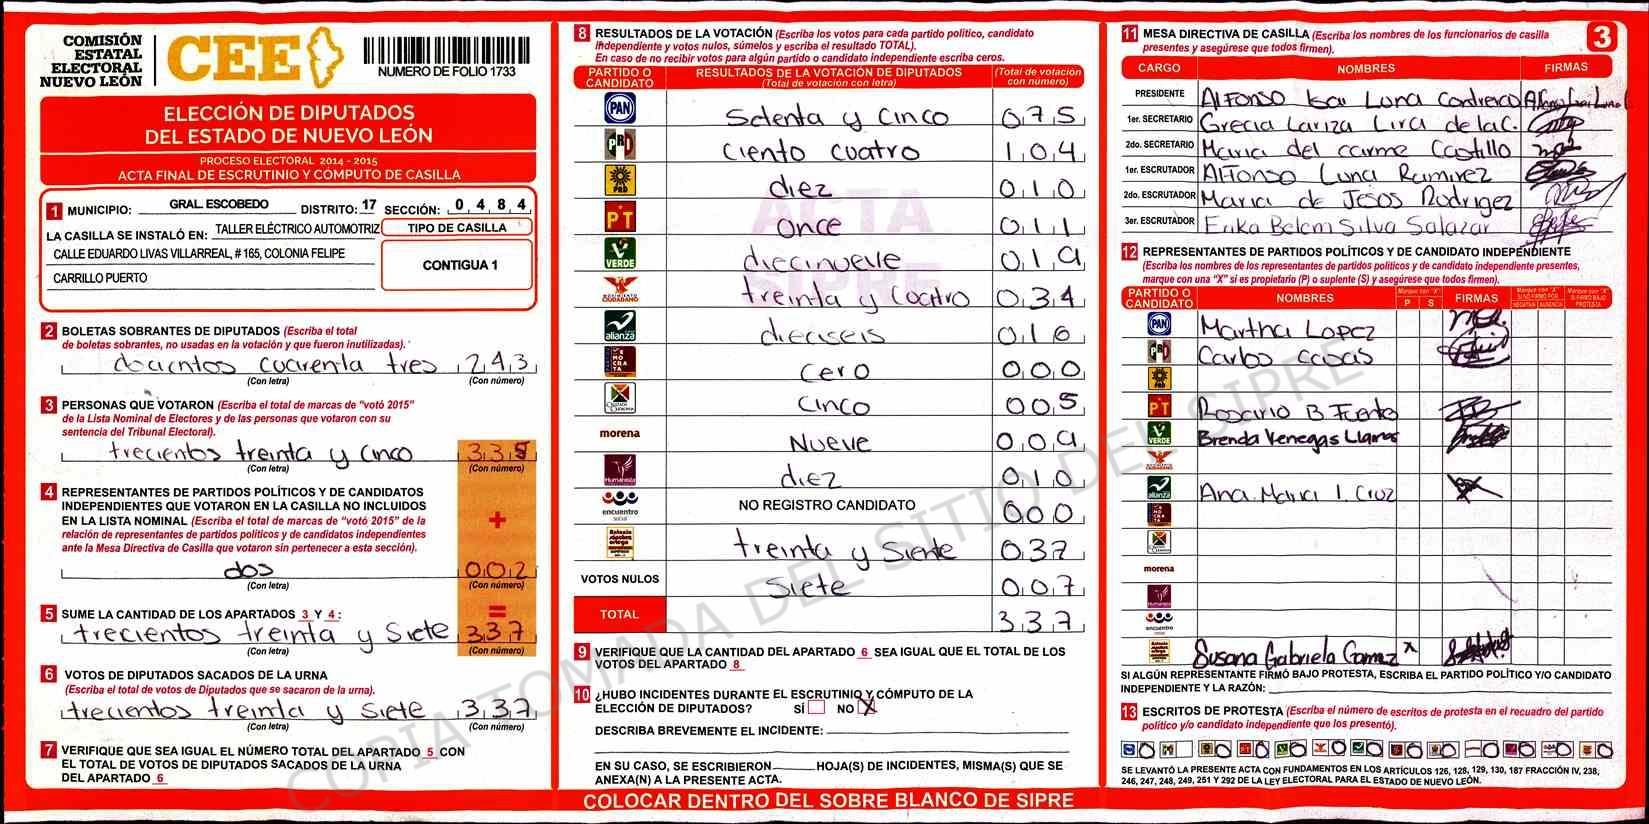 COMISIÓN
ESTATAL
ELECTORAL
NUEVO LEÓN
CEE
NUMERO DE FOLIO 1733
ELECCIÓN DE DIPUTADOS
DEL ESTADO DE NUEVO LEÓN
PROCESO ELECTORAL 2014 - 2015
ACTA FINAL DE ESCRUTINIO Y CÓMPUTO DE CASILLA
1 MUNICIPIO: GRAL. ESCOBEDO DISTRITO: 17 SECCIÓN: 0 4 8 4
LA CASILLA SE INSTALÓ EN: TALLER ELÉCTRICO AUTOMOTRIZ
CALLE EDUARDO LIVAS VILLARREAL, # 165, COLONIA FELIPE
CARRILLO PUERTO
TIPO DE CASILLA
CONTIGUA 1
2 BOLETAS SOBRANTES DE DIPUTADOS (Escriba el total
de boletas sobrantes, no usadas en la votación y que fueron inutilizadas).
docientos cuarenta tres 2 4 3
(Con letra) (Con número)
3 PERSONAS QUE VOTARON (Escriba el total de marcas de "votó 2015"
de la Lista Nominal de Electores y de las personas que votaron con su
sentencia del Tribunal Electoral).
trecientos treinta y cinco 3 3 5
(Con letra) (Con número)
4 REPRESENTANTES DE PARTIDOS POLÍTICOS Y DE CANDIDATOS
INDEPENDIENTES QUE VOTARON EN LA CASILLA NO INCLUIDOS
EN LA LISTA NOMINAL (Escriba el total de marcas de "votó 2015" de la
relación de representantes de partidos políticos y de candidatos independientes
ante la Mesa Directiva de Casilla que votaron sin pertenecer a esta sección).
+
dos 0 0 2
(Con letra) (Con número)
5 SUME LA CANTIDAD DE LOS APARTADOS 3 Y 4 :
=
trecientos treinta y siete 3 3 7
(Con letra) (Con número)
6 VOTOS DE DIPUTADOS SACADOS DE LA URNA
(Escriba el total de votos de Diputados que se sacaron de la urna).
trecientos treinta y siete 3 3 7
(Con letra) (Con número)
7 VERIFIQUE QUE SEA IGUAL EL NÚMERO TOTAL DEL APARTADO 5 CON
EL TOTAL DE VOTOS DE DIPUTADOS SACADOS DE LA URNA
DEL APARTADO 6
8 RESULTADOS DE LA VOTACIÓN (Escriba los votos para cada partido político, candidato
independiente y votos nulos, súmelos y escriba el resultado TOTAL).
En caso de no recibir votos para algún partido o candidato independiente escriba ceros.
PARTIDO O CANDIDATO RESULTADOS DE LA VOTACIÓN DE DIPUTADOS (Total de votación con letra) (Total de votación con número)
PAN Setenta y Cinco 0 7 5
PRD ciento cuatro 1 0 4
PRD diez 0 1 0
PT once 0 1 1
VERDE diecinueve 0 1 9
MOVIMIENTO CIUDADANO treinta y coatro 0 3 4
alianza dieciseis 0 1 6
cero 0 0 0
cinco 0 0 5
morena Nueve 0 0 9
Humanista diez 0 1 0
encuentro social NO REGISTRO CANDIDATO 0 0 0
treinta y siete 0 3 7
VOTOS NULOS siete 0 0 7
TOTAL 3 3 7
ACTA
SIPRE
9 VERIFIQUE QUE LA CANTIDAD DEL APARTADO 6 SEA IGUAL QUE EL TOTAL DE LOS
VOTOS DEL APARTADO 8
10 ¿HUBO INCIDENTES DURANTE EL ESCRUTINIO Y CÓMPUTO DE LA
ELECCIÓN DE DIPUTADOS? SÍ NO X
DESCRIBA BREVEMENTE EL INCIDENTE:
EN SU CASO, SE ESCRIBIERON HOJA(S) DE INCIDENTES, MISMA(S) QUE SE
ANEXA(N) A LA PRESENTE ACTA.
COLOCAR DENTRO DEL SOBRE BLANCO DE SIPRE
COPIA TOMADA DEL SITIO DEL SIPRE
11 MESA DIRECTIVA DE CASILLA (Escriba los nombres de los funcionarios de casilla
presentes y asegúrese que todos firmen).
3
CARGO NOMBRES FIRMAS
PRESIDENTE Alfonso Isai Luna Contreras
1er. SECRETARIO Grecia Lariza Lira de la C.
2do. SECRETARIO Maria del carme Castillo
1er. ESCRUTADOR Alfonso Luna Ramirez
2do. ESCRUTADOR Maria de Jesos Rodrigez
3er. ESCRUTADOR Erika Belem Silva Salazar
12 REPRESENTANTES DE PARTIDOS POLÍTICOS Y DE CANDIDATO INDEPENDIENTE
(Escriba los nombres de los representantes de partidos políticos y de candidato independiente presentes,
marque con una "X" si es propietario (P) o suplente (S) y asegúrese que todos firmen).
PARTIDO O CANDIDATO NOMBRES Marque con "X" P S FIRMAS
PAN Martha Lopez
Carlos
PRD
PT Rosario B Fuente
VERDE Brenda Venegas Llanas
alianza Ana Maria I. Cruz
morena
Humanista
encuentro social
Susana Gabriela Gamez X
SI ALGÚN REPRESENTANTE FIRMÓ BAJO PROTESTA, ESCRIBA EL PARTIDO POLÍTICO Y/O CANDIDATO
INDEPENDIENTE Y LA RAZÓN:
13 ESCRITOS DE PROTESTA (Escriba el número de escritos de protesta en el recuadro del partido
político y/o candidato independiente que los presentó).
SE LEVANTÓ LA PRESENTE ACTA CON FUNDAMENTOS EN LOS ARTÍCULOS 126, 128, 129, 130, 187 FRACCIÓN IV, 238,
246, 247, 248, 249, 251 Y 292 DE LA LEY ELECTORAL PARA EL ESTADO DE NUEVO LEÓN.